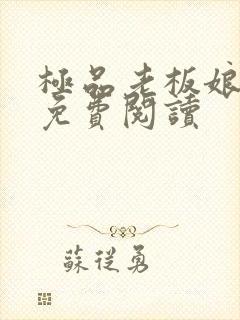 極品老板娘
免費閱讀
蘇從勇